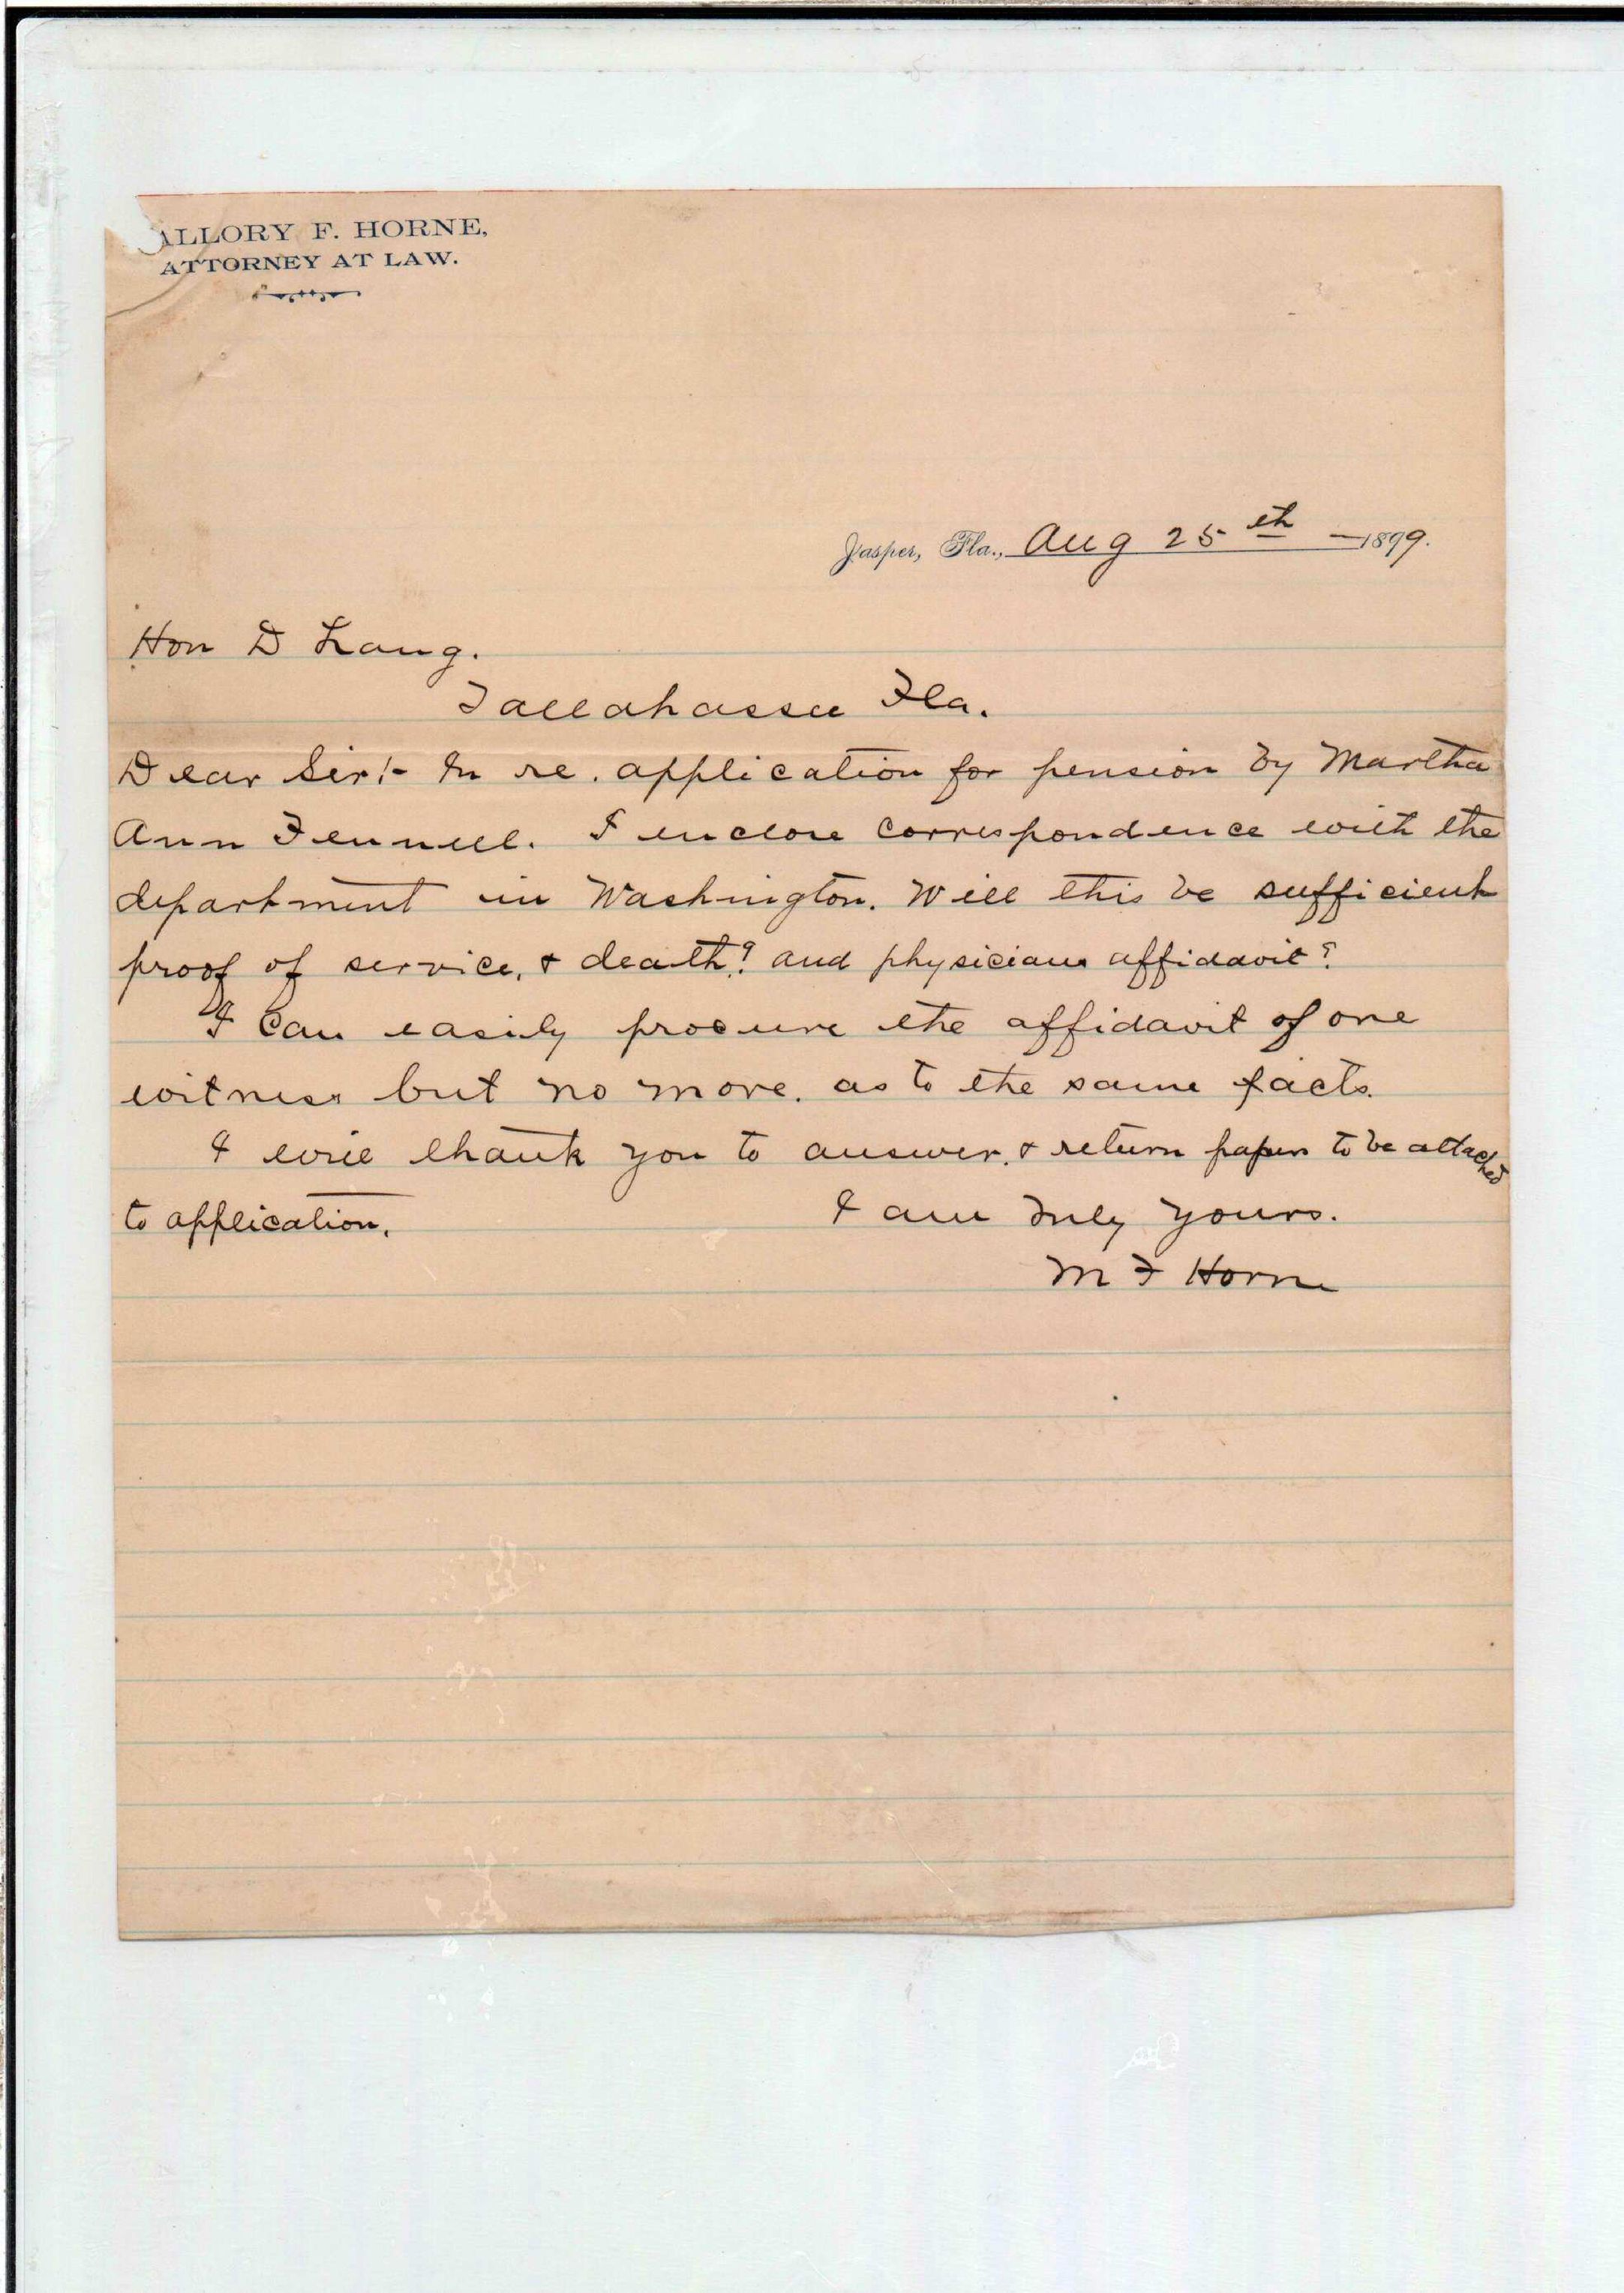 ALLORY F. HORNE,
ATTORNEY AT LAW.
Jasper, Fla., Aug 25th – 1899.
Hon D Lang.
Tallahassee Fla.
Dear Sir:- In re. application for pension by Martha
Ann Fennell. I enclose correspondence with the
department in Washington. Will this be sufficient
proof of service, & death? and physicians affidavit?
I Can easily procure the affidavit of one
witness but no more. as to the same facts.
I will thank you to answer, & return papers to be attached
to application.
I am Truly yours.
M F Horne